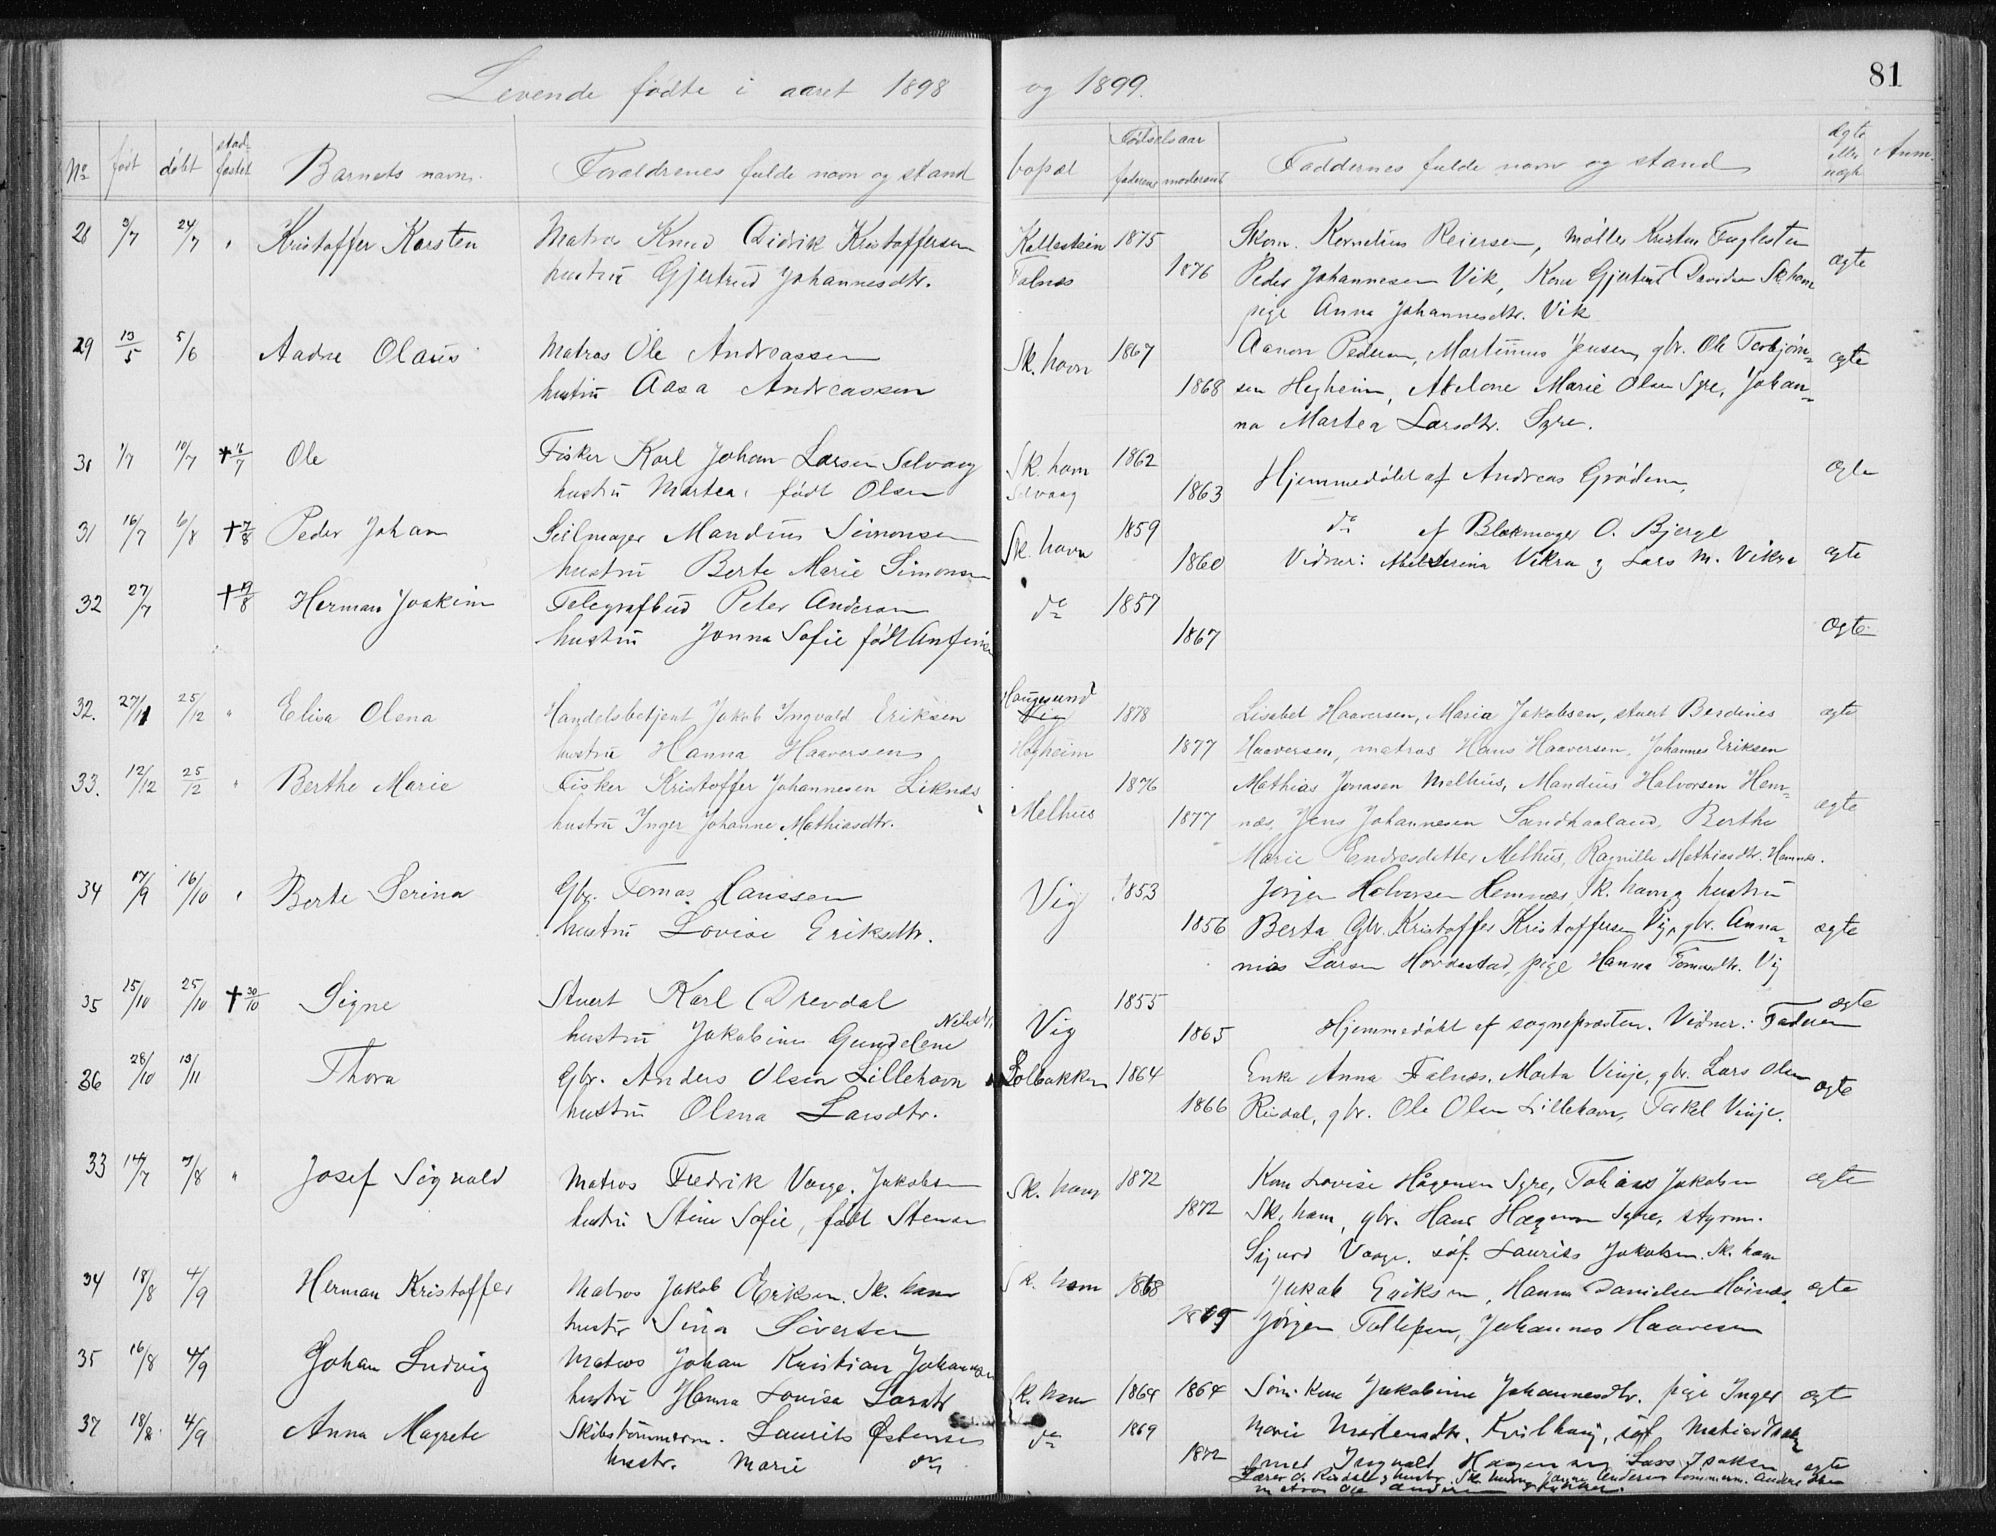 81
Levende fødte i aaret 1898 og 1899.
No født døbt stadfæstet Barnets navn. Forældrenes fulde navn og stand bopæl Fødselsaar faderens moderens Faddernes fulde navn og stand ægte eller uægte Anm.
28 3/7 24/7 " Kristoffer Karsten Matros Knud Didrik Kristoffersen Kallestein 1875 Skom. Kornelius Reiersen, møller Kristen Fuglesten ægte
hustru Gjertrud Johannesdtr. Falnæs 1876 Peder Johannesen Vik, Kone Gjertrud Davidsen Sk. havn
pige Anna Johannesdtr. Vik
29 13/5 5/6 Aadne Olaus Matros Ole Andreassen Sk. havn 1867 Aanon Pedersen, Martinius Jensen, gbr. Ole Torbjørn- ægte
hustru Aasa Andreassen 1868 sen Hegheim, Abelone Marie Olsen Syre, Johan-
na Martea Larsdtr. Syre.
30 1/7 10/7 †16/7 Ole Fisker Karl Johan Larsen Selvaag Sk. havn 1862 Hjemmedøbt af Andreas Grødem, ægte
hustru Martea, født Olsen Selvaag 1863
31 16/7 6/8 †7/8 Peder Johan Seilmager Mandius Simonsen Sk. havn 1859 do af Blokmager O. Bjerge
hustru Berte Marie Simonsen 1860 Vidner: Abelserina Vikra og Lars M. Vikra ægte
32 27/7 †19/8 Herman Joakim Telegrafbud Peter Andersen do 1857
hustru Jonna Sofie født Anfin 1867 ægte
32. 27/11 25/12 " Elisa Olena Handelsbetjent Jakob Ingvald Eriksen Haugesund Vig 1878 Lisabet Haaversen, Maria Jakobsen, stuert Berdines ægte
hustru Hanna Haaversen Hegheim 1877 Haaversen, matros Hans Haaversen, Johannes Eriksen
33. 12/12 25/12 " Berthe Marie Fisker Kristoffer Johannesen Liknes Melhus 1876 Mathias Jonasen Melhus, Mandius Halvorsen Hem-
hustru Inger Johanne Mathiasdtr. 1877 næs, Jens Johannesen Sandhaaland, Berthe ægte
Marie Endresdatter Melhus, Ragnille Mathiasdtr. Hemnes.
34 17/9 16/10 " Berte Serina Gbr. Tomas Hanssen Vig 1853 Jørgen Halvorsen Hemnæs, Sk. havn og hustru
hustru Lovise Eriksdtr. 1856 Berta Gbr. Kristoffer Kristoffersen Vig, gbr. Anna- ægte
nias Larsen Hovdastad, pige Hanna Tomasdtr. Vig
35 15/10 25/10 †30/10 Signe Stuert Karl Drevdal Vig 1855 ægte
hustru Jakobine Gundelene Nilsdtr. 1865 Hjemmedøbt af sognepræsten. Vidner: Faderen
36 28/10 13/11 Thora Gbr. Anders Olsen Lillehavn Solbakken 1864 Enke Anna Falnæs. Marta Vinje, gbr. Lars Olsen ægte
hustru Olena Larsdtr. 1866 Risdal, gbr. Ole Olsen Lillehavn, Torkel Vinje.
33 14/7 7/8 " Josef Sigvald Matros Fredrik Vorge. Jakobsen Sk. havn 1872 Kone Lovise Hågensen Syre, Tobias Jakobsen ægte
hustru Stine Sofie, født Stensen 1872 Sk. havn, gbr. Hans Hagensen Syre, styrm.
Sigurd Vorge. søf. Laurits Jakobsen. Sk. havn
34 18/8 4/9 Herman Kristoffer Matros Jakob Eriksen. Sk. havn Sk. havn 1868 Jakob Eriksen, Hanna Danielsen Høines, ægte
hustr Sina Siversen 1869 Jørgen Tollefsen, Johannes Haaversen
35 16/8 4/9 Johan Ludvig Matros Johan Kristian Johannesen
hustru Hanna Lovise Larsdtr Sk. havn 1864 1864 Søm. kone Jakobine Johannesdtr. pige Inger ægte
37 18/8. 4/9 Anna Magrete Skibstømmerm. Laurits Østensen do 1869 Marie Mortensdtr. Kvilhaug, søf. Matias
hustr. Marie do 1872 smed Ingvald Hagen og Lars Isaksen ægte
Lærer O. Risdal og hustr. Sk. havn, Janna Andersen tømmerm. Andreas Olsen
matros Ole Andersen